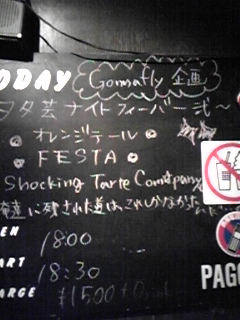 ODAY Gonnafly 企画
ヲタ芸ナイトフィーバー弐〜
オレンジテール
FESTA
Shocking Tarte Company
俺達に残された道はこれしかなかった
EN 18:00
ART 18:30
ARGE ¥1500+
PAGO